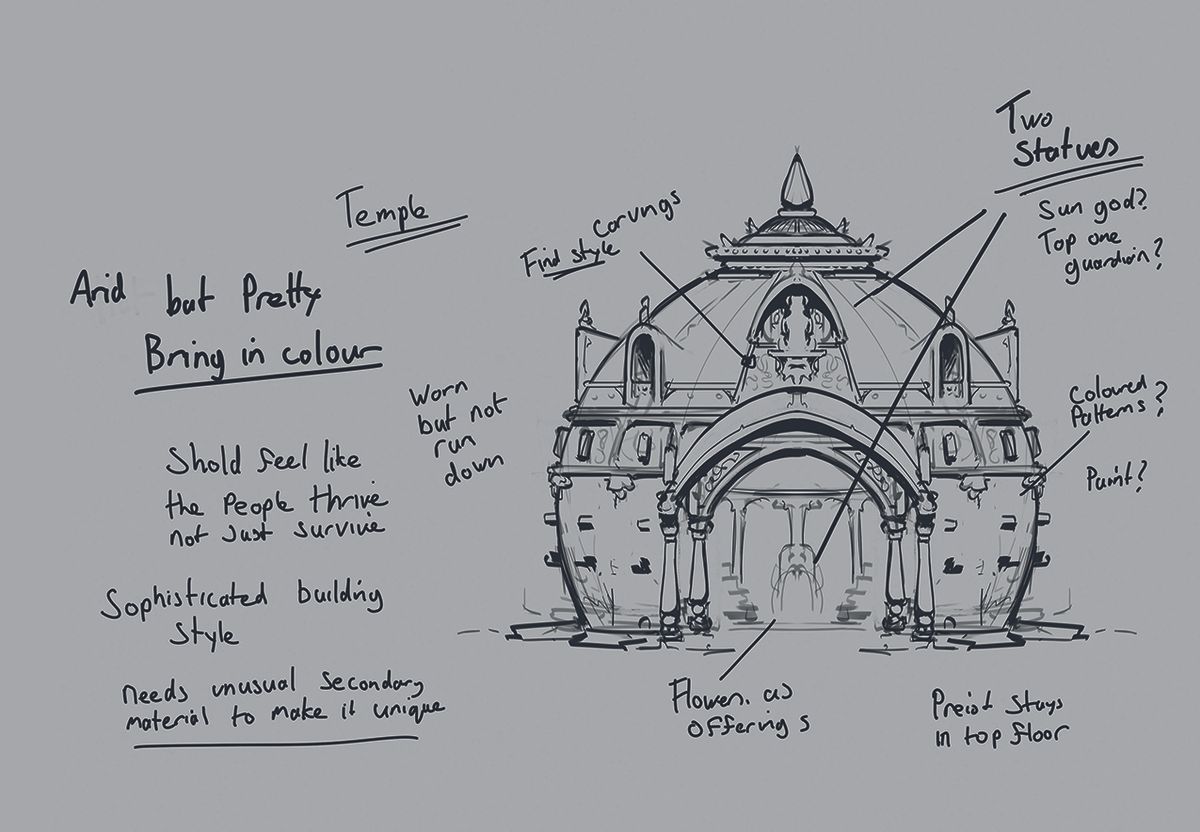 Temple
Arid but Pretty
Bring in colour
Worn
but not
run
down
Shold feel like
the People thrive
not Just survive
Sophisticated building
Style
needs unusual Secondary
material to make it unique
Carvings
Find style
Two
Statues
Sun god?
Top one
guardian?
Coloured
Patterns?
Paint?
Flowers as
offerings
Preist Stays
in top floor